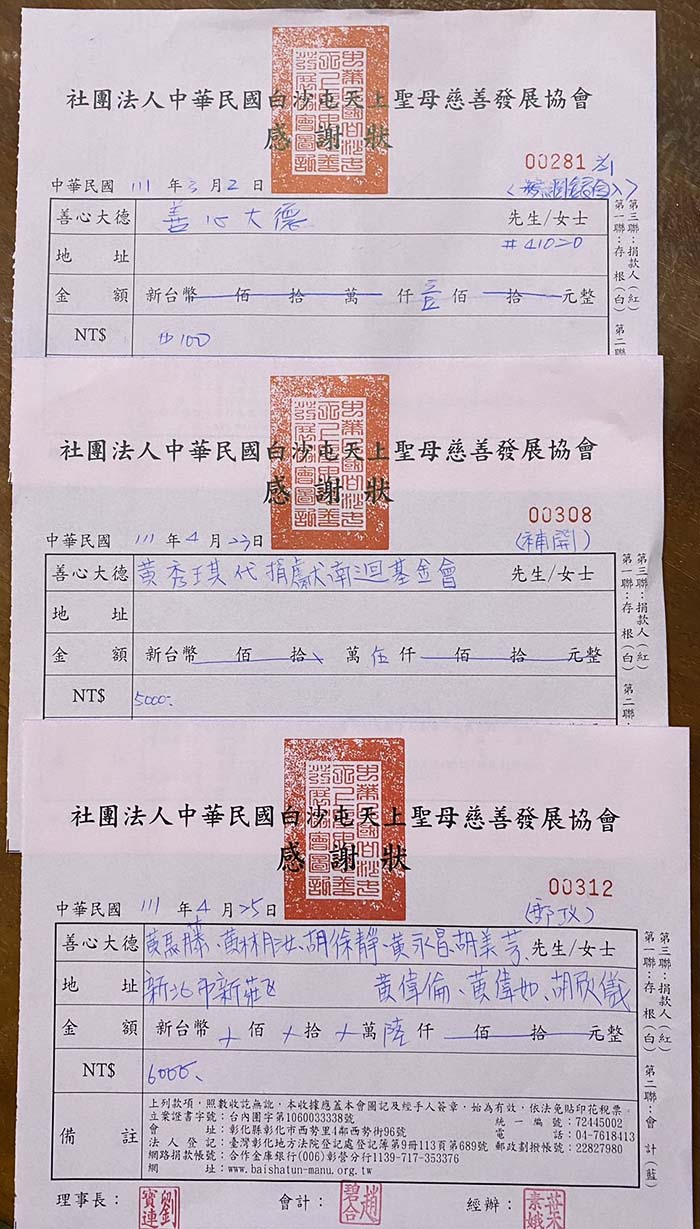 社團法人中華民國白沙屯天上聖母慈善發展協會
感謝狀
00281
中華民國 111 年 3 月 2 日
善心大德 善心大德 先生/女士
地址 #41020
金額 新台幣 佰 拾 萬 仟 壹 佰 拾 元整
NT$ 100
第三聯：捐款人(紅)
第一聯：存根(白) 第二聯
社團法人中華民國白沙屯天上聖母慈善發展協會
感謝狀
00308
中華民國 111 年 4 月 23 日 (補開)
善心大德 黃秀琪代捐獻南迴基金會 先生/女士
地址
金額 新台幣 佰 拾 萬 伍 仟 佰 拾 元整
NT$ 5000.
第三聯：捐款人(紅)
第一聯：存根(白) 第二聯：
社團法人中華民國白沙屯天上聖母慈善發展協會
感謝狀
00312
中華民國 111 年 4 月 25 日 (郵政)
善心大德 黃 藤、黃林月汝、胡徐靜、黃永昌、胡美芳、 先生/女士
地址 新北市新莊區 黃偉倫、黃偉如、胡欣儀
金額 新台幣 佰 拾 萬 陸 仟 佰 拾 元整
NT$ 6000.
備註
上列款項，照數收訖無訛，本收據應蓋本會圖記及經手人簽章，始為有效，依法免貼印花稅票。
立案證書字號：台內團字第1060033338號 統一編號：72445002
會址：彰化縣彰化市西勢里4鄰西勢街96號 電話：04-7618413
法人登記：臺灣彰化地方法院登記處登記簿第9冊113頁第689號 郵政劃撥帳號：22827980
網路捐款帳號：合作金庫銀行(006)彰營分行1139-717-353376
網址：www.baishatun-manu.org.tw
第三聯：捐款人(紅)
第一聯：存根(白) 第二聯：會計(藍)
理事長： 劉寶連 會計： 趙碧合 經辦：